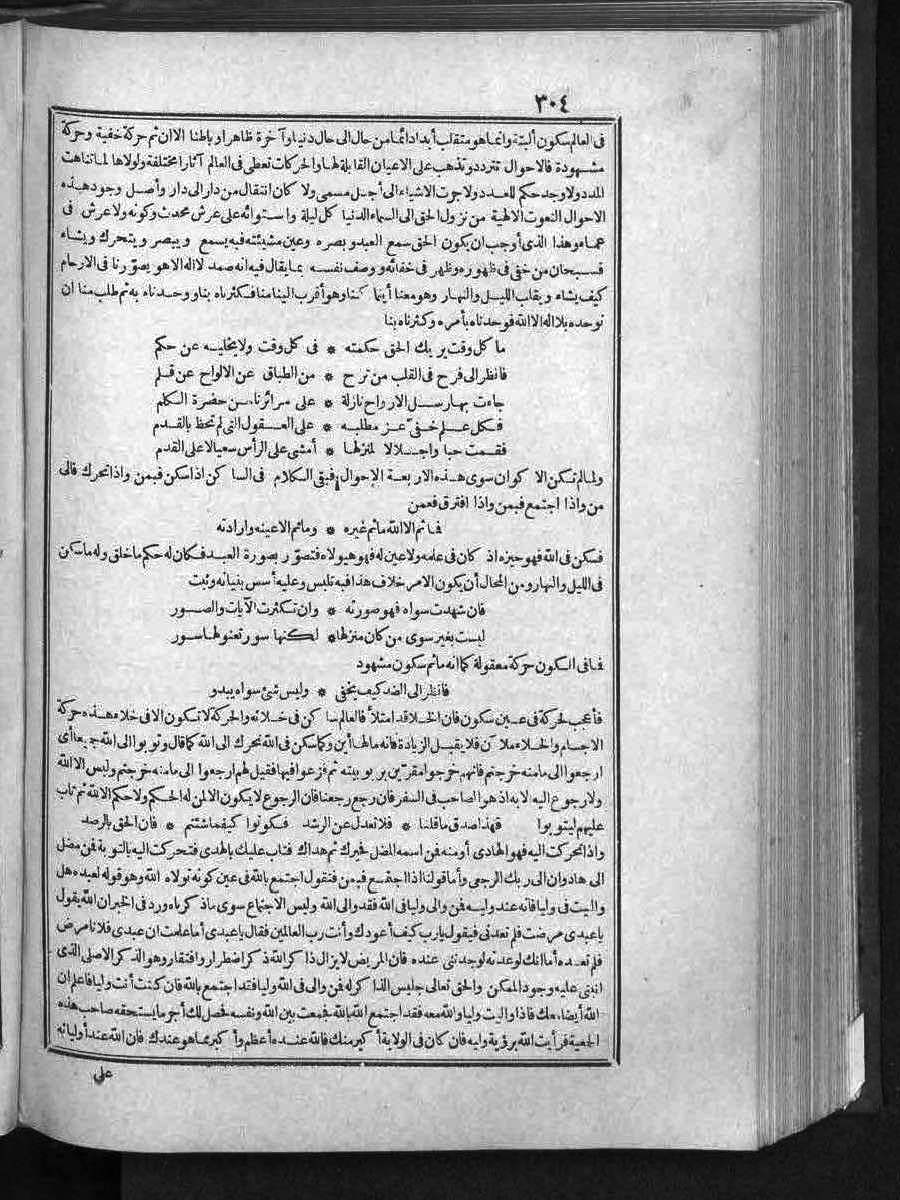 ٣٠٤
فى العالم سكون ألبتة وانما هو متقلب أبدا دائما من حال الى حال دنيا وآخرة ظاهرا وباطنا الا ان ثم حركة خفية وحركة
مشهودة فالاحوال تتردد وتذهب على الاعيان القابلة لها والحركات تعطى فى العالم آثارا مختلفة ولولاها لما تناهت
المدد ولا وجد حكم للعدد ولا جرت الاشياء الى أجل مسمى ولا كان انتقال من دار الى دار وأصل وجود هذه
الاحوال النعوت الالهية من نزول الحق الى السماء الدنيا كل ليلة واستوائه على عرش محدث وكونه ولا عرش فى
عماء وهذا الذى أوجب ان يكون الحق سمع العبد وبصره وعين مشيئته فبه يسمع ويبصر ويتحرك ويشاء
فسبحان من خفى فى ظهوره وظهر فى خفائه ووصف نفسه بما يقال فيه انه صمد لا اله الا هو يصوّرنا فى الارحام
كيف يشاء ويقلب الليل والنهار وهو معنا أينما كنا وهو أقرب الينا منا فكثرناه بنا ووحدناه به ثم طلب منا ان
نوحده بلا اله الا الله فوحدناه بأمره وكثرناه بنا
ما كل وقت يريك الحق حكمته * فى كل وقت ولا يخليه عن حكم
فانظر الى فرح فى القلب من ترح * من الطباق عن الالواح عن قلم
جاءت بها رسل الارواح نازلة * على سرائرنا من حضرة الكلم
فكل علم خفىّ عز مطلبه * على العقول التى لم تحظ بالقدم
فقمت حبا واجلالا لمنزلها * أمشى على الرأس سعيا لا على القدم
ولما لم تكن الاكوان سوى هذه الاربعة الاحوال فبقى الكلام فى الساكن اذا سكن فيمن واذا تحرك فالى
من واذا اجتمع فبمن واذا افترق فعمن
فما ثم الا الله ما ثم غيره * وما ثم الا عينه وارادته
فسكن فى الله فهو حيزه اذ كان فى علمه ولا عين له فهو هيولاه فتصوّر بصورة العبد فكان له حكم ما خلق وله ما سكن
فى الليل والنهار ومن المحال أن يكون الامر خلاف هذا فبه تلبس وعليه أسس بنيانه وثبت
فان شهدت سواه فهو صورته * وان تكثرت الآيات والصور
ليست بغير سوى من كان منزلها * لكنها سور تعنو لها سور
فما فى السكون حركة معقولة كما انه ما ثم سكون مشهود
فانظر الى الضد كيف يخفى * وليس شئ سواه يبدو
فأعجب لحركة فى عين سكون فان الخلا قد امتلأ فالعالم ساكن فى خلائه والحركة لا تكون الا فى خلاء هذه حركة
الاجسام والخلاء ملآن فلا يقبل الزيادة فانه ما لها أين وكما سكن فى الله تحرك الى الله كما قال وتوبوا الى الله جميعا أى
ارجعوا الى ما منه خرجتم فانهم خرجوا مقرّين بربوبيته ثم نزعوا فيها فقيل لهم ارجعوا الى ما منه خرجتم وليس الا الله
ولا رجوع اليه الا به اذ هو الصاحب فى السفر فان رجع رجعنا فان الرجوع لا يكون الا لمن له الحكم ولا حكم الا لله ثم تاب
عليهم ليتوبوا فهذا صدق ما قلنا * فلا تعدل عن الرشد فكونوا كيفما شئتم * فان الحق بالرصد
واذا تحركت اليه فهو الهادى أو منه فمن اسمه المضل فحيرك ثم هداك فتاب عليك بالهدى فتحركت اليه بالتوبة فمن مضل
الى هاد وان الى ربك الرجعى وأما قولنا اذا اجتمع فبمن فنقول اجتمع بالله فى عين كونه تولاه الله وهو قوله لعبده هل
واليت فى وليا فانه عند وليه فمن والى وليا فى الله فقد والى الله وليس الاجتماع سوى ما ذكرناه ورد فى الخبر ان الله يقول
يا عبدى مرضت فلم تعدنى فيقول يا رب كيف أعودك وأنت رب العالمين فقال يا عبدى أما علمت ان عبدى فلانا مرض
فلم تعده أما انك لو عدته لوجدتنى عنده فان المريض لا يزال ذاكرا لله ذكر اضطرار وافتقار وهو الذكر الاصلى الذى
انبنى عليه وجود الممكن والحق تعالى جليس الذاكر له فمن والى فى الله وليا فقد اجتمع بالله فان كنت أنت وليا فاعلم ان
الله أيضا معك فاذا واليت وليا والله معه فقد اجتمع الله بالله فجمعت بين الله ونفسه فحصل لك أجر ما يستحقه صاحب هذه
الجمعية فرأيت الله برؤية وليه فان كان فى الولاية أكبر منك فالله عنده أعظم وأكبر مما هو عندك فان الله عند أوليائه
على